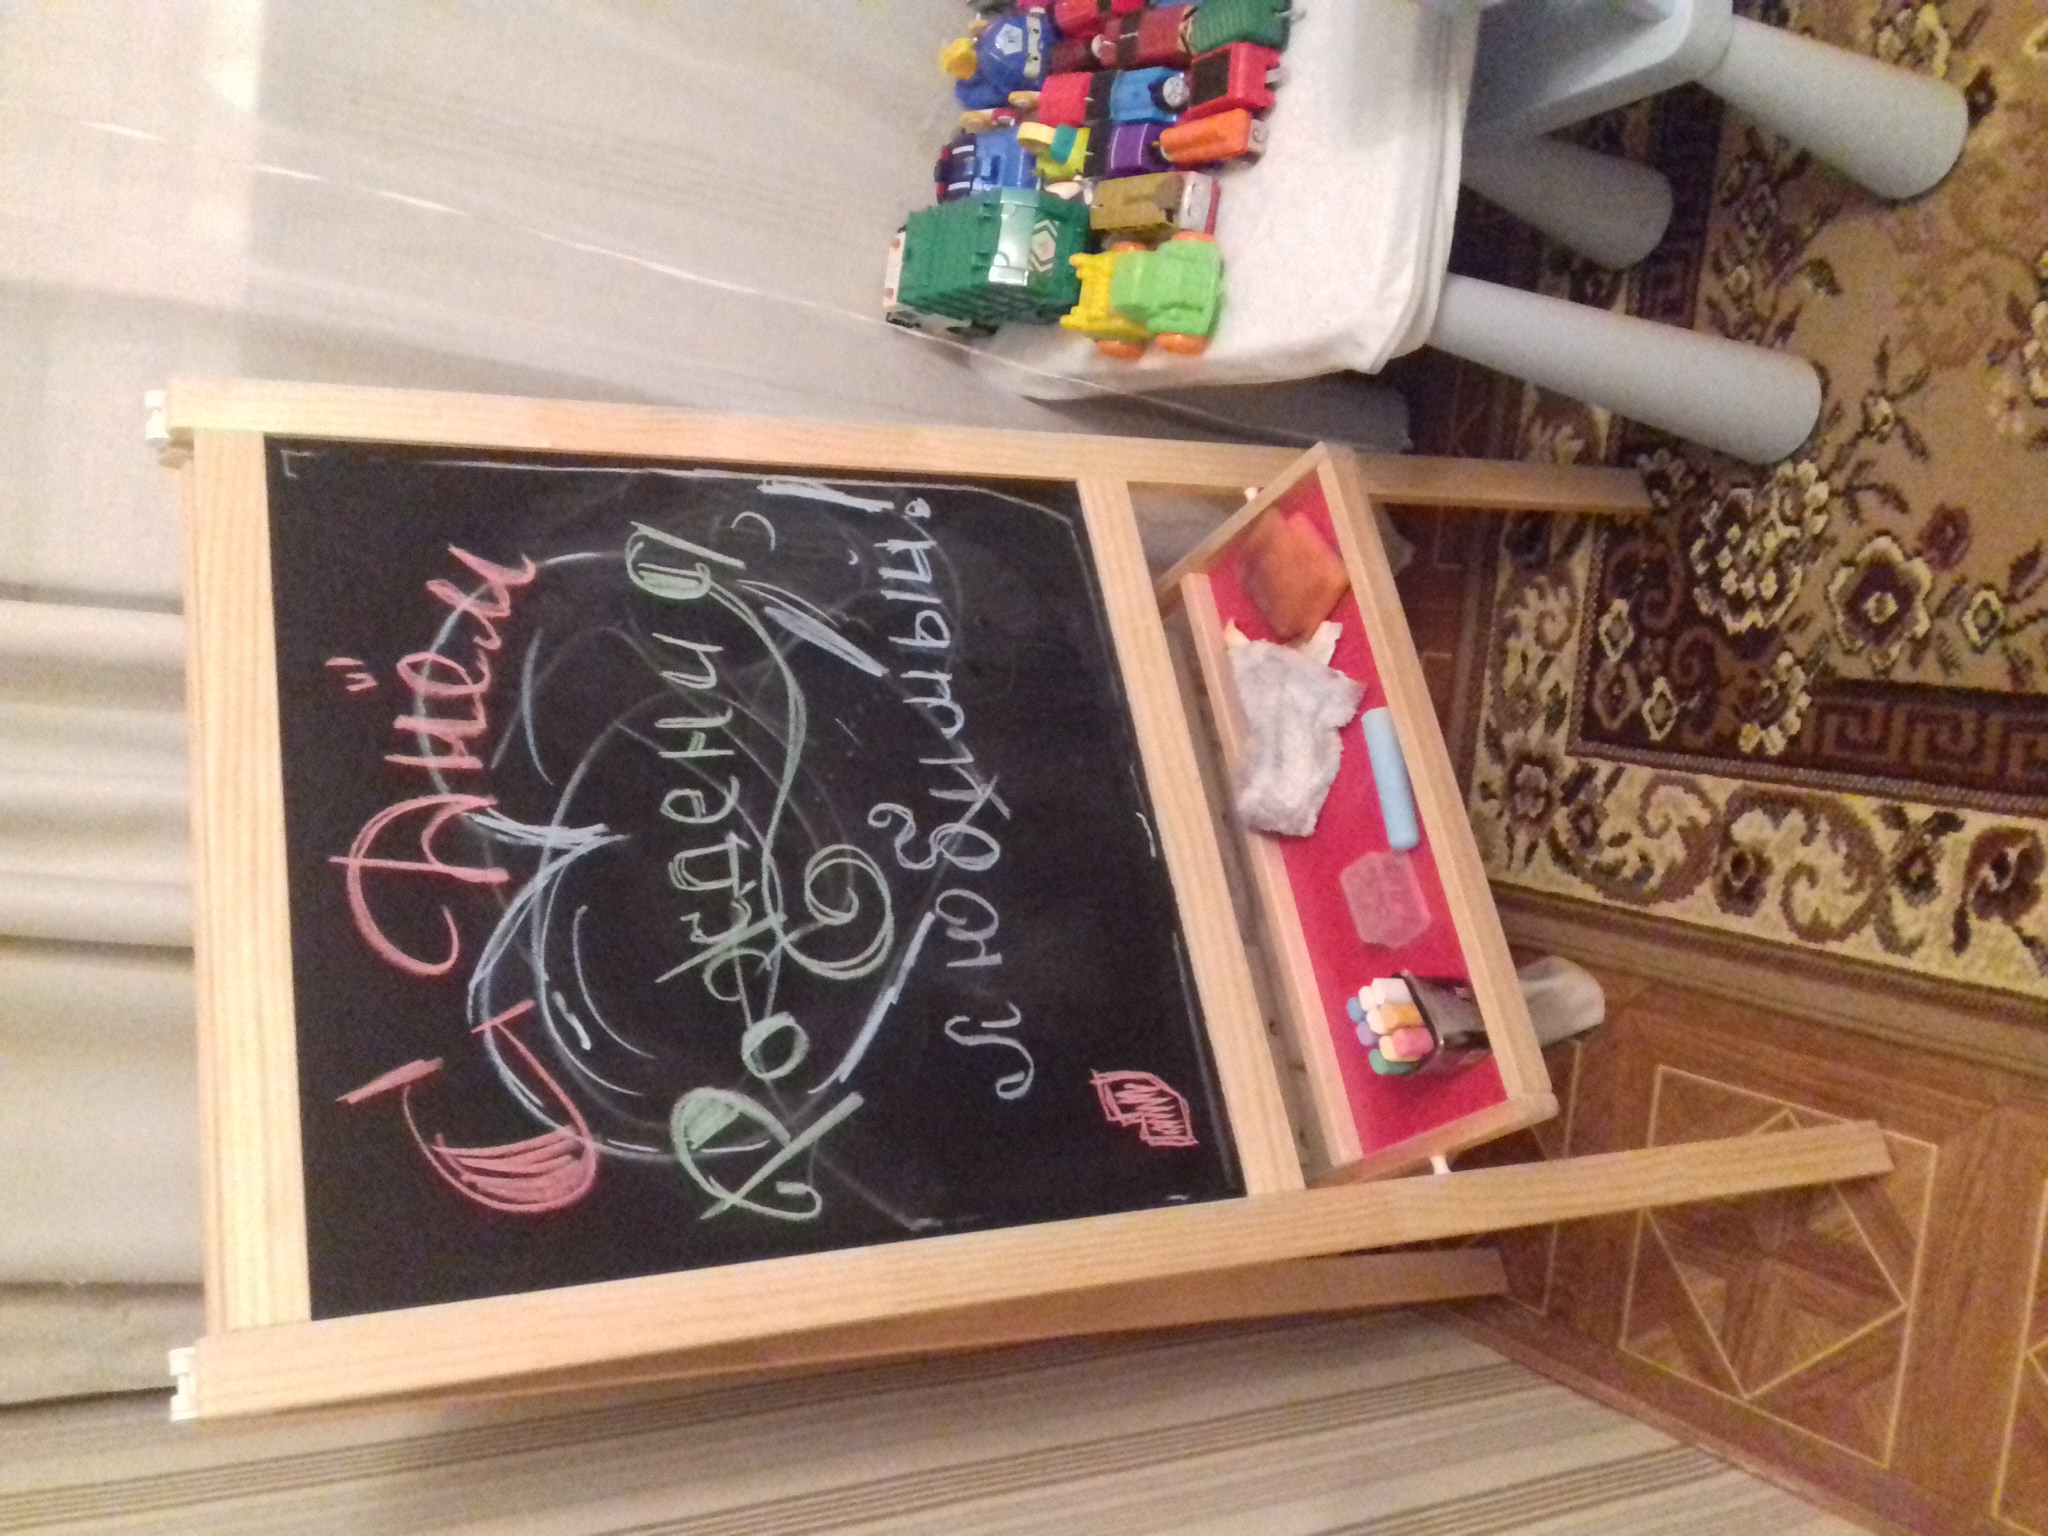 С Днём
Рождения
Любимый!